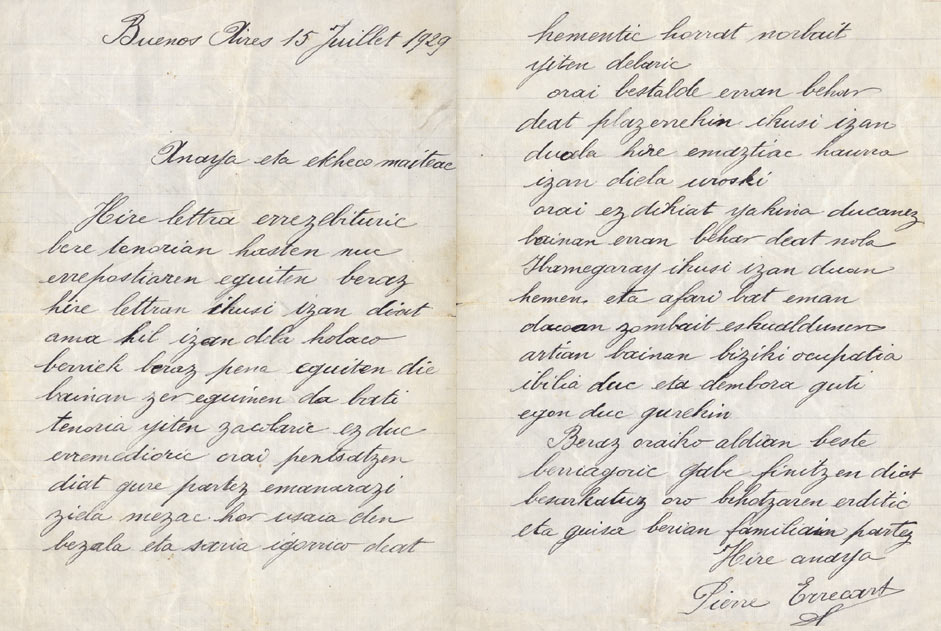 Buenos Aires 15 Juillet 1929
Anaya eta etcheco maiteac
Hire lettra errezebituric
bere tenorian hasten nuc
errepostiaren eguiten beraz
hire lettran ikusi izan diat
ama hil izan dela holaco
berriek beraz pena eguiten die
bainan zer eguinen da bati
tenoria yiten zacolaric ez duc
erremedioric orai pentsatzen
diat gure partez emanarazi
ziela mezac hor usaia den
bezala eta saria igorrico deat
hementic horrat norbait
yiten delaric
orai bestalde erran behar
deat plazerrekin ikusi izan
duala hire emaztiac haurra
izan diela uroski
orai ez dikiat yakina ducanez
bainan erran behar deat nola
Ibarnegaray ikusi izan duan
hemen eta afari bat eman
dacoan zombait eskualdunen
artian bainan biziki ocupatia
ibilia duc eta dembora guti
egon duc gurekin
Beraz oraiko aldian beste
berriagoric gabe finitzen diat
besarkatuz oro bihotzaren erditic
eta guisa berian familiain partez
Hire anaya
Pierre Errecart